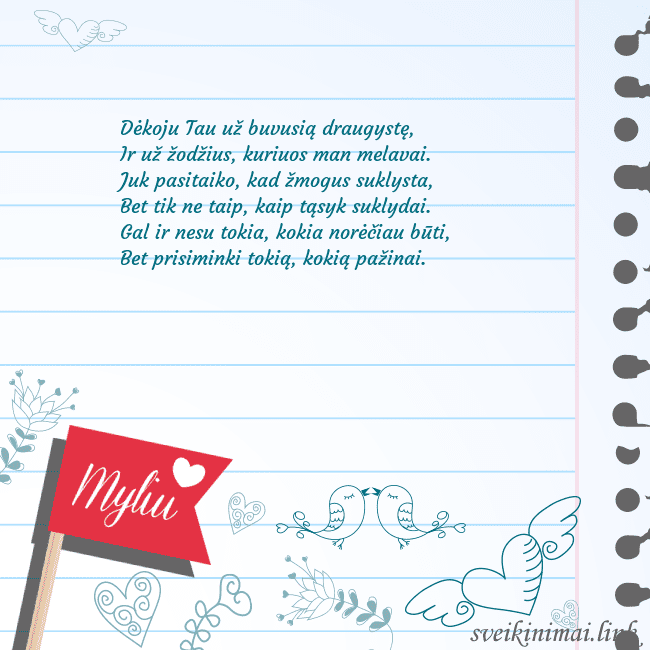 Dėkoju Tau už buvusią draugystę,
Ir už žodžius, kuriuos man melavai.
Juk pasitaiko, kad žmogus suklysta,
Bet tik ne taip, kaip tąsyk suklydai.
Gal ir nesu tokia, kokia norėčiau būti,
Bet prisiminki tokią, kokią pažinai.
Myliu
sveikinimai.link